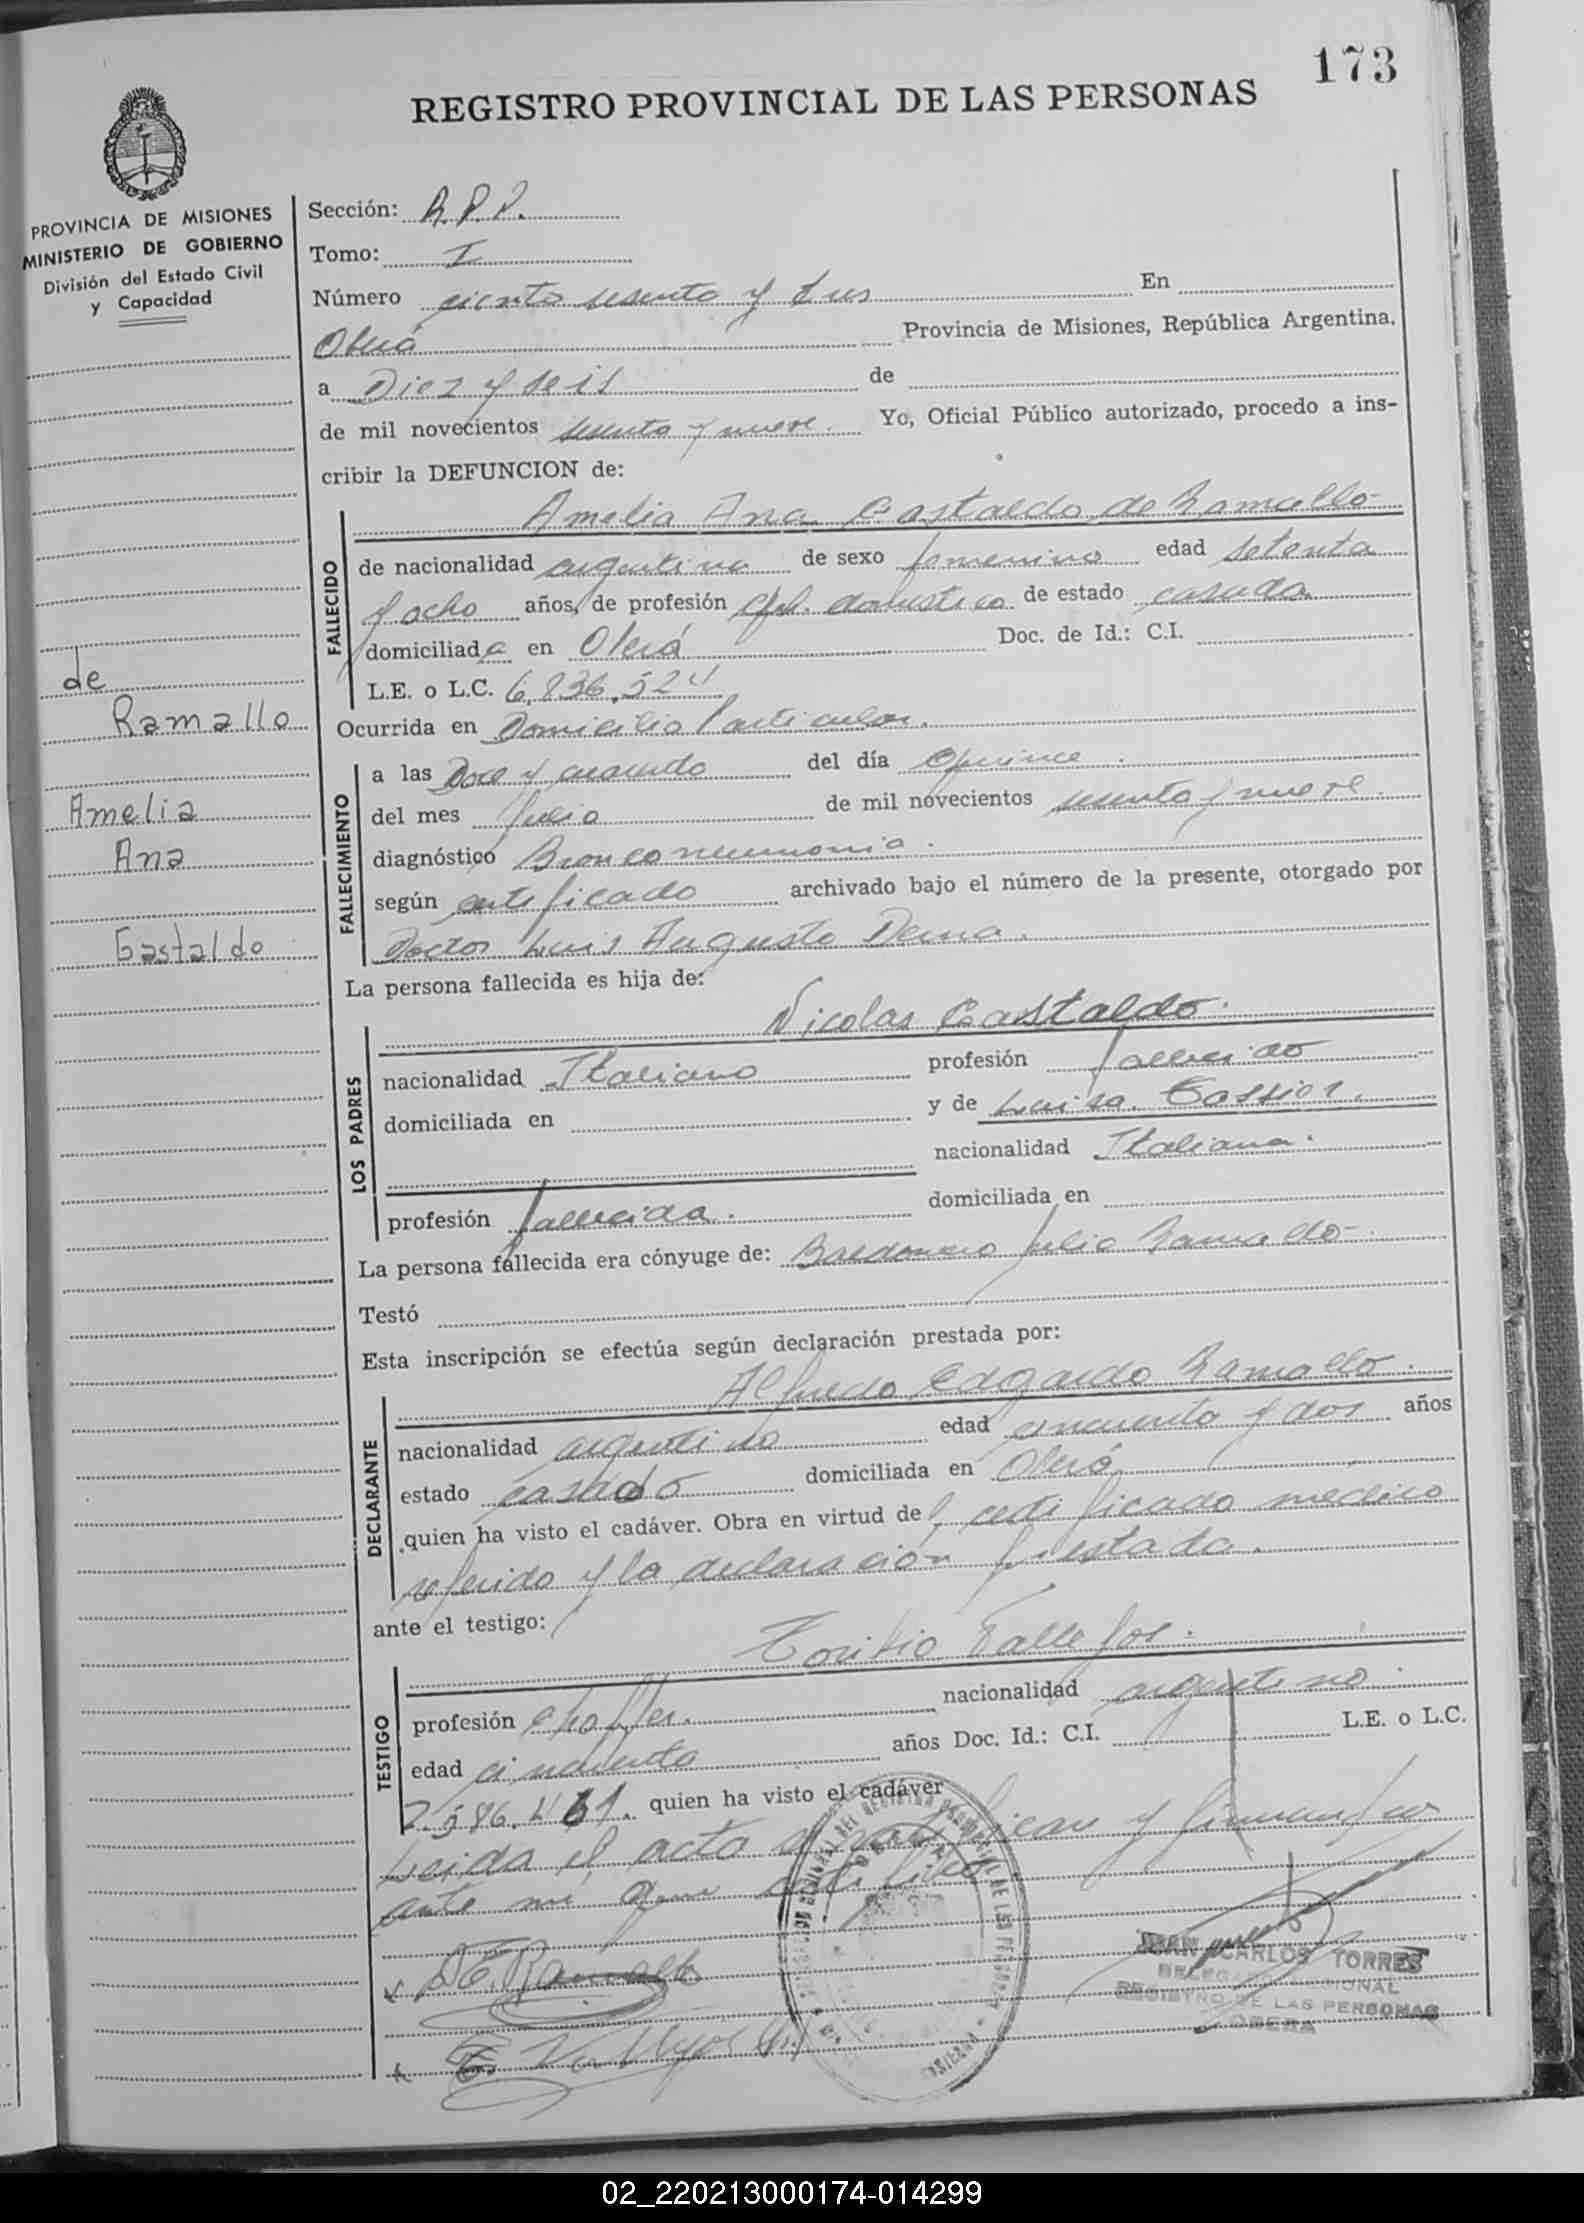 173
REGISTRO PROVINCIAL DE LAS PERSONAS
PROVINCIA DE MISIONES
MINISTERIO DE GOBIERNO
División del Estado Civil
y Capacidad
de
Ramallo
Amelia
Ana
Gastaldo
Sección: R.P.P.
Tomo: I
Número ciento sesenta y tres En
Oberá Provincia de Misiones, República Argentina,
a Diez y seis de
de mil novecientos sesenta y nueve. Yo, Oficial Público autorizado, procedo a ins-
cribir la DEFUNCION de:
FALLECIDO
Amelia Ana Gastaldo de Ramallo
de nacionalidad argentina de sexo femenino edad setenta
y ocho años, de profesión domestica de estado casada
domiciliada en Oberá Doc. de Id.: C.I.
L.E. o L.C. 6.836.524
Ocurrida en Domicilio Particular.
FALLECIMIENTO
a las Doce y cuarenta del día Quince
del mes Julio de mil novecientos sesenta y nueve.
diagnóstico Bronconeumonia.
según certificado archivado bajo el número de la presente, otorgado por
Doctor Luis Augusto Derna.
La persona fallecida es hija de:
LOS PADRES
Nicolas Gastaldo.
nacionalidad Italiano profesión fallecido
domiciliada en y de Luisa
nacionalidad Italiana.
profesión fallecida. domiciliada en
La persona fallecida era cónyuge de: Baldomero Julio Ramallo
Testó
Esta inscripción se efectúa según declaración prestada por:
DECLARANTE
Alfredo Edgardo Ramallo.
nacionalidad argentino edad cincuenta y dos años
estado casado domiciliada en Oberá
quien ha visto el cadáver. Obra en virtud del certificado medico
referido y la declaración prestada.
ante el testigo:
TESTIGO
Toribio Vallejos.
profesión choffer. nacionalidad argentino
edad cincuenta años Doc. Id.: C.I. L.E. o L.C.
2.586.461. quien ha visto el cadáver
Leida el acta la ratifican y firman por
ante mi que certifico
A.E. Ramallo
JUAN CARLOS TORRES
REGISTRO DE LAS PERSONAS
OBERA
02_220213000174-014299